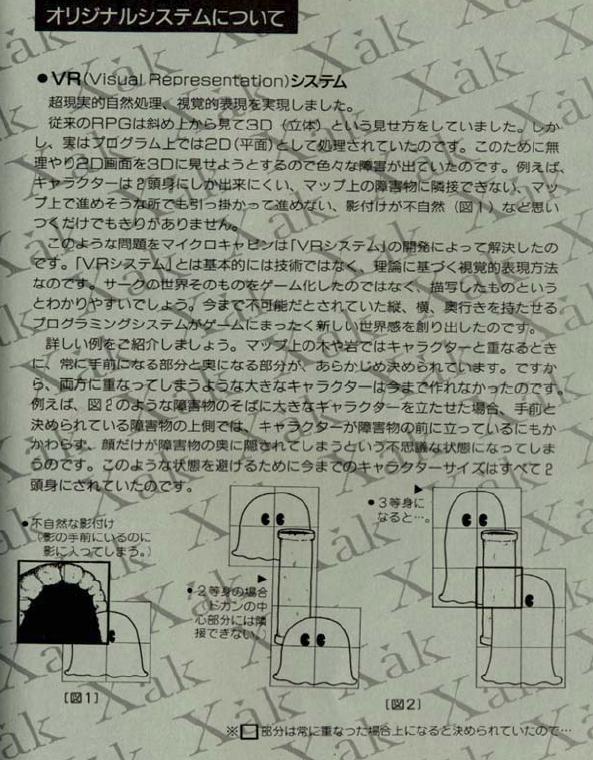 オリジナルシステムについて
●VR(Visual Representation)システム
超現実的自然処理、視覚的表現を実現しました。
従来のRPGは斜め上から見て3D（立体）という見せ方をしていました。しか
し、実はプログラム上では2D(平面)として処理されていたのです。このために無
理やり2D画面を3Dに見せようとするので色々な障害が出ていたのです。例えば、
キャラクターは2頭身にしか出来にくい、マップ上の障害物に隣接できない、マッ
プ上で進めそうな所でも引っ掛かって進めない、影付けが不自然（図1）など思い
つくだけでもきりがありません。
このような問題をマイクロキャビンは「VRシステム」の開発によって解決したの
です。「VRシステム」とは基本的には技術ではなく、理論に基づく視覚的表現方法
なのです。サークの世界そのものをゲーム化したのではなく、描写したものという
とわかりやすいでしょう。今まで不可能だとされていた縦、横、奥行きを持たせる
プログラミングシステムがゲームにまったく新しい世界感を創り出したのです。
詳しい例をご紹介しましょう。マップ上の木や岩ではキャラクターと重なるとき
に、常に手前になる部分と奥になる部分が、あらかじめ決められています。ですか
ら、両方に重なってしまうような大きなキャラクターは今まで作れなかったのです。
例えば、図2のような障害物のそばに大きなキャラクターを立たせた場合、手前と
決められている障害物の上側では、キャラクターが障害物の前に立っているにもか
かわらず、顔だけが障害物の奥に隠されてしまうという不思議な状態になってしま
うのです。このような状態を避けるために今までのキャラクターサイズはすべて2
頭身にされていたのです。
●不自然な影付け
（影の手前にいるのに
影に入ってしまう。）
［図1］
▶
●2等身の場合
（ドカンの中
心部分には隣
接できない。）
▶
●3等身に
なると…。
［図2］
※□部分は常に重なった場合上になると決められていたので…
Xak
Xak
Xak
Xak
Xak
Xak
Xak
Xak
Xak
Xak
Xak
Xak